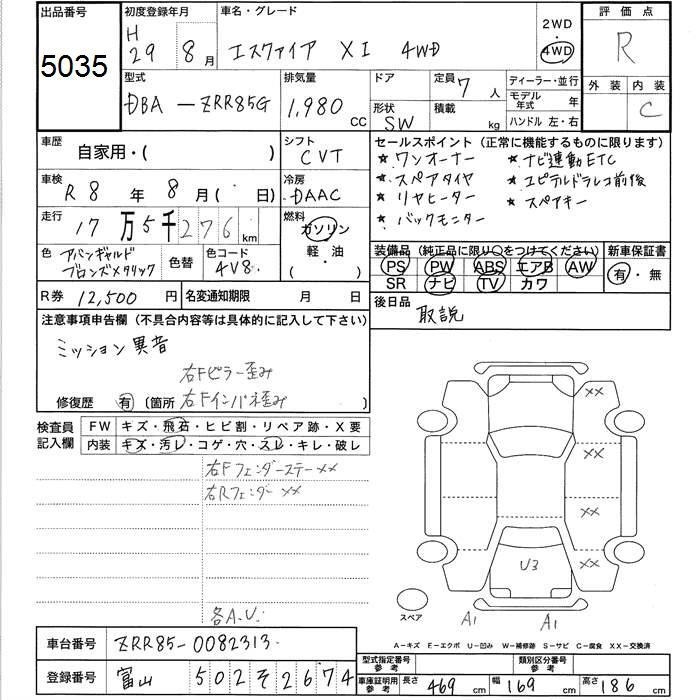 出品番号
5035
初度登録年月
H 29 8月
車名・グレード
エスクァイア XI 4WD
2WD
4WD
評価点
R
外装 内装
C
型式
DBA-ZRR85G
排気量
1,980 CC
ドア
形状
SW
定員 7 人
積載 kg
ディーラー・並行
モデル年式 年
ハンドル 左・右
車歴
自家用・( )
シフト
CVT
セールスポイント (正常に機能するものに限ります)
★ワンオーナー ★ナビ連動ETC
★スペアタイヤ ★ユピテルドラレコ前後
★リヤヒーター ★スペアキー
★バックモニター
車検
R 8 年 8 月( 日)
冷房
DAAC
走行
17万5千276 km
燃料
ガソリン
軽・油
(・)
色
アバンギャルド
ブロンズメタリック
色替
色コード
4V8
装備品 (純正品に限り○をつけてください)
PS PW ABS エアB AW
SR ナビ TV カワ
新車保証書
有・無
R券 12,500 円
名変通知期限 月 日
後日品
取説
注意事項申告欄 (不具合内容等は具体的に記入して下さい)
ミッション異音
右Fピラー歪み
修復歴 有 (箇所 右Fインパネ歪み )
検査員記入欄
FW キズ・飛石・ヒビ割・リペア跡・X要
内装 キズ・汚レ・コゲ・穴・スレ・キレ・破レ
右Fフェンダーステー××
右Rフェンダー××
各A.U.
××
××
××
××
U3
A1
A1
スペア
A-キズ E-エクボ U-凹み W-補修跡 S-サビ C-腐食 XX-交換済
車台番号 ZRR85-0082313
登録番号 富山 502 そ 2674
型式指定番号 参考
類別区分番号 参考
車庫証明用 参考
長さ 469 cm
幅 169 cm
高さ 186 cm